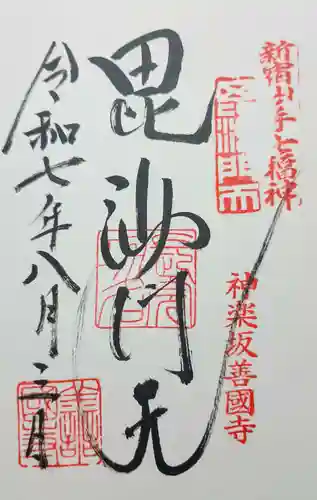 新宿山ノ手七福神
毘沙門天
神楽坂善國寺
令和七年八月三日